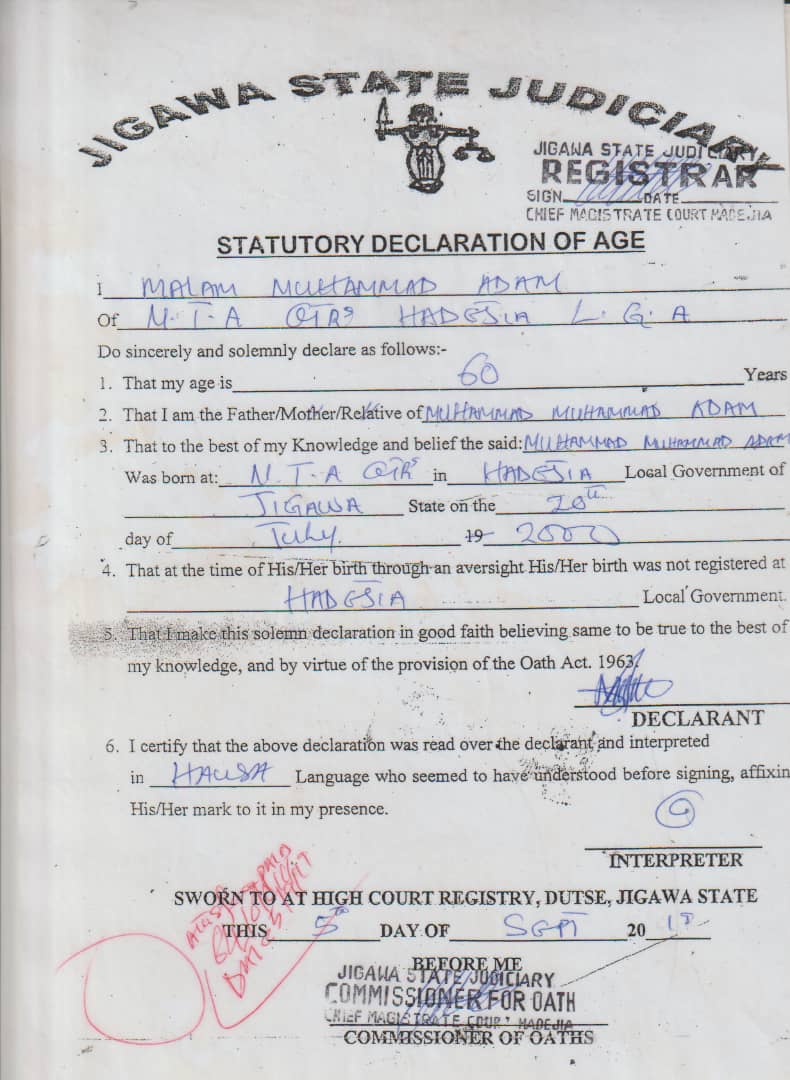 JIGAWA STATE JUDICIARY
JIGAWA STATE JUDICIARY
REGISTRAR
SIGN DATE
CHIEF MAGISTRATE COURT HADEJIA
STATUTORY DECLARATION OF AGE
I MALAM MUHAMMAD ADAM
Of N.T.A QTRS HADEJIA L.G.A
Do sincerely and solemnly declare as follows:-
1. That my age is 60 Years
2. That I am the Father/Mother/Relative of MUHAMMAD MUHAMMAD ADAM
3. That to the best of my Knowledge and belief the said: MUHAMMAD MUHAMMAD ADAM
Was born at: N.T.A QTRS in HADEJIA Local Government of
JIGAWA State on the 20th
day of July. 19 2000
4. That at the time of His/Her birth through an aversight His/Her birth was not registered at
HADEJIA Local Government.
5. That I make this solemn declaration in good faith believing same to be true to the best of
my knowledge, and by virtue of the provision of the Oath Act. 1963.
DECLARANT
6. I certify that the above declaration was read over the declarant and interpreted
in HAUSA Language who seemed to have understood before signing, affixin
His/Her mark to it in my presence.
INTERPRETER
SWORN TO AT HIGH COURT REGISTRY, DUTSE, JIGAWA STATE
THIS 5th DAY OF SEPT 20
BEFORE ME
JIGAWA STATE JUDICIARY
COMMISSIONER FOR OATH
CHIEF MAGISTRATE COURT HADEJIA
COMMISSIONER OF OATHS